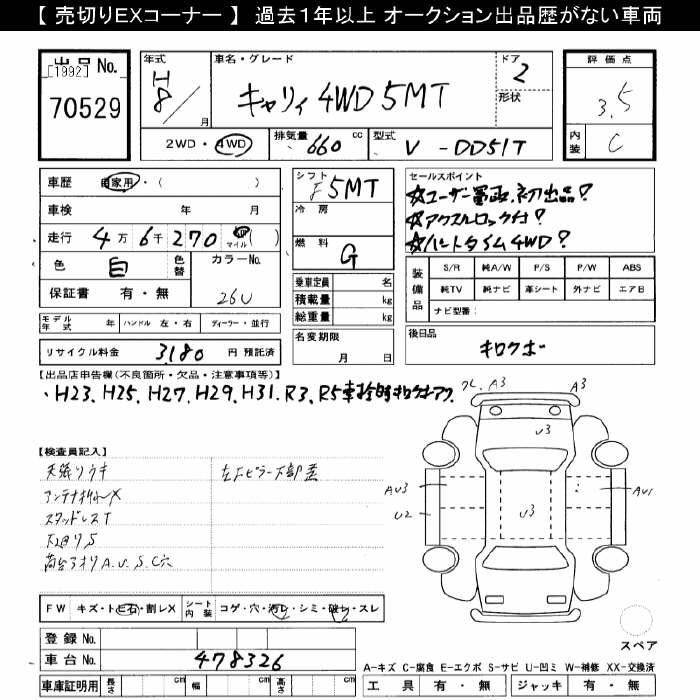 【 売切りEXコーナー 】 過去１年以上 オークション出品歴がない車両
出品 No.
[1992]
70529
年式
H8/
月
車名・グレード
キャリィ 4WD 5MT
ドア
2
形状
評価点
3.5
内装
C
2WD・4WD
排気量 660 cc
型式 V - DD51T
車歴 自家用・( )
車検 年 月
走行 4万 6千 270 km マイル ( )
色 白 色替
カラーNo.
26U
保証書 有・無
モデル年式 年 ハンドル 左・右 ディーラー・並行
リサイクル料金 3,180 円 預託済
シフト F5MT
冷房
燃料 G
乗車定員 名
積載量 kg
総重量 kg
名変期限
月 日
セールスポイント
☆ユーザー買取.初出品？
☆アクスルロック付？
☆パートタイム4WD？
装備品
S/R 純A/W P/S P/W ABS
純TV 純ナビ 革シート 外ナビ エアB
ナビ型番：
後日品
キロクボ
【出品店申告欄(不良箇所・欠品・注意事項等)】
・H23. H25. H27. H29. H31. R3. R5車検時キロクボアリ
【検査員記入】
天張リウキ
アンテナ折れX
スタッドレスT
下廻りS
荷台アオリA.U.S.C穴
左Fピラー下部歪
FW キズ・トビ石・割レX
シート内装 コゲ・穴・汚レ・シミ・破レ・スレ
登録 No.
車台 No. 478326
車庫証明用 長さ cm 幅 cm 高さ cm
クレ. A3
A3
U3
AU3
U2
U3
AU1
スペア
A-キズ C-腐食 E-エクボ S-サビ U-凹ミ W-補修 XX-交換済
工具 有・無 ジャッキ 有・無